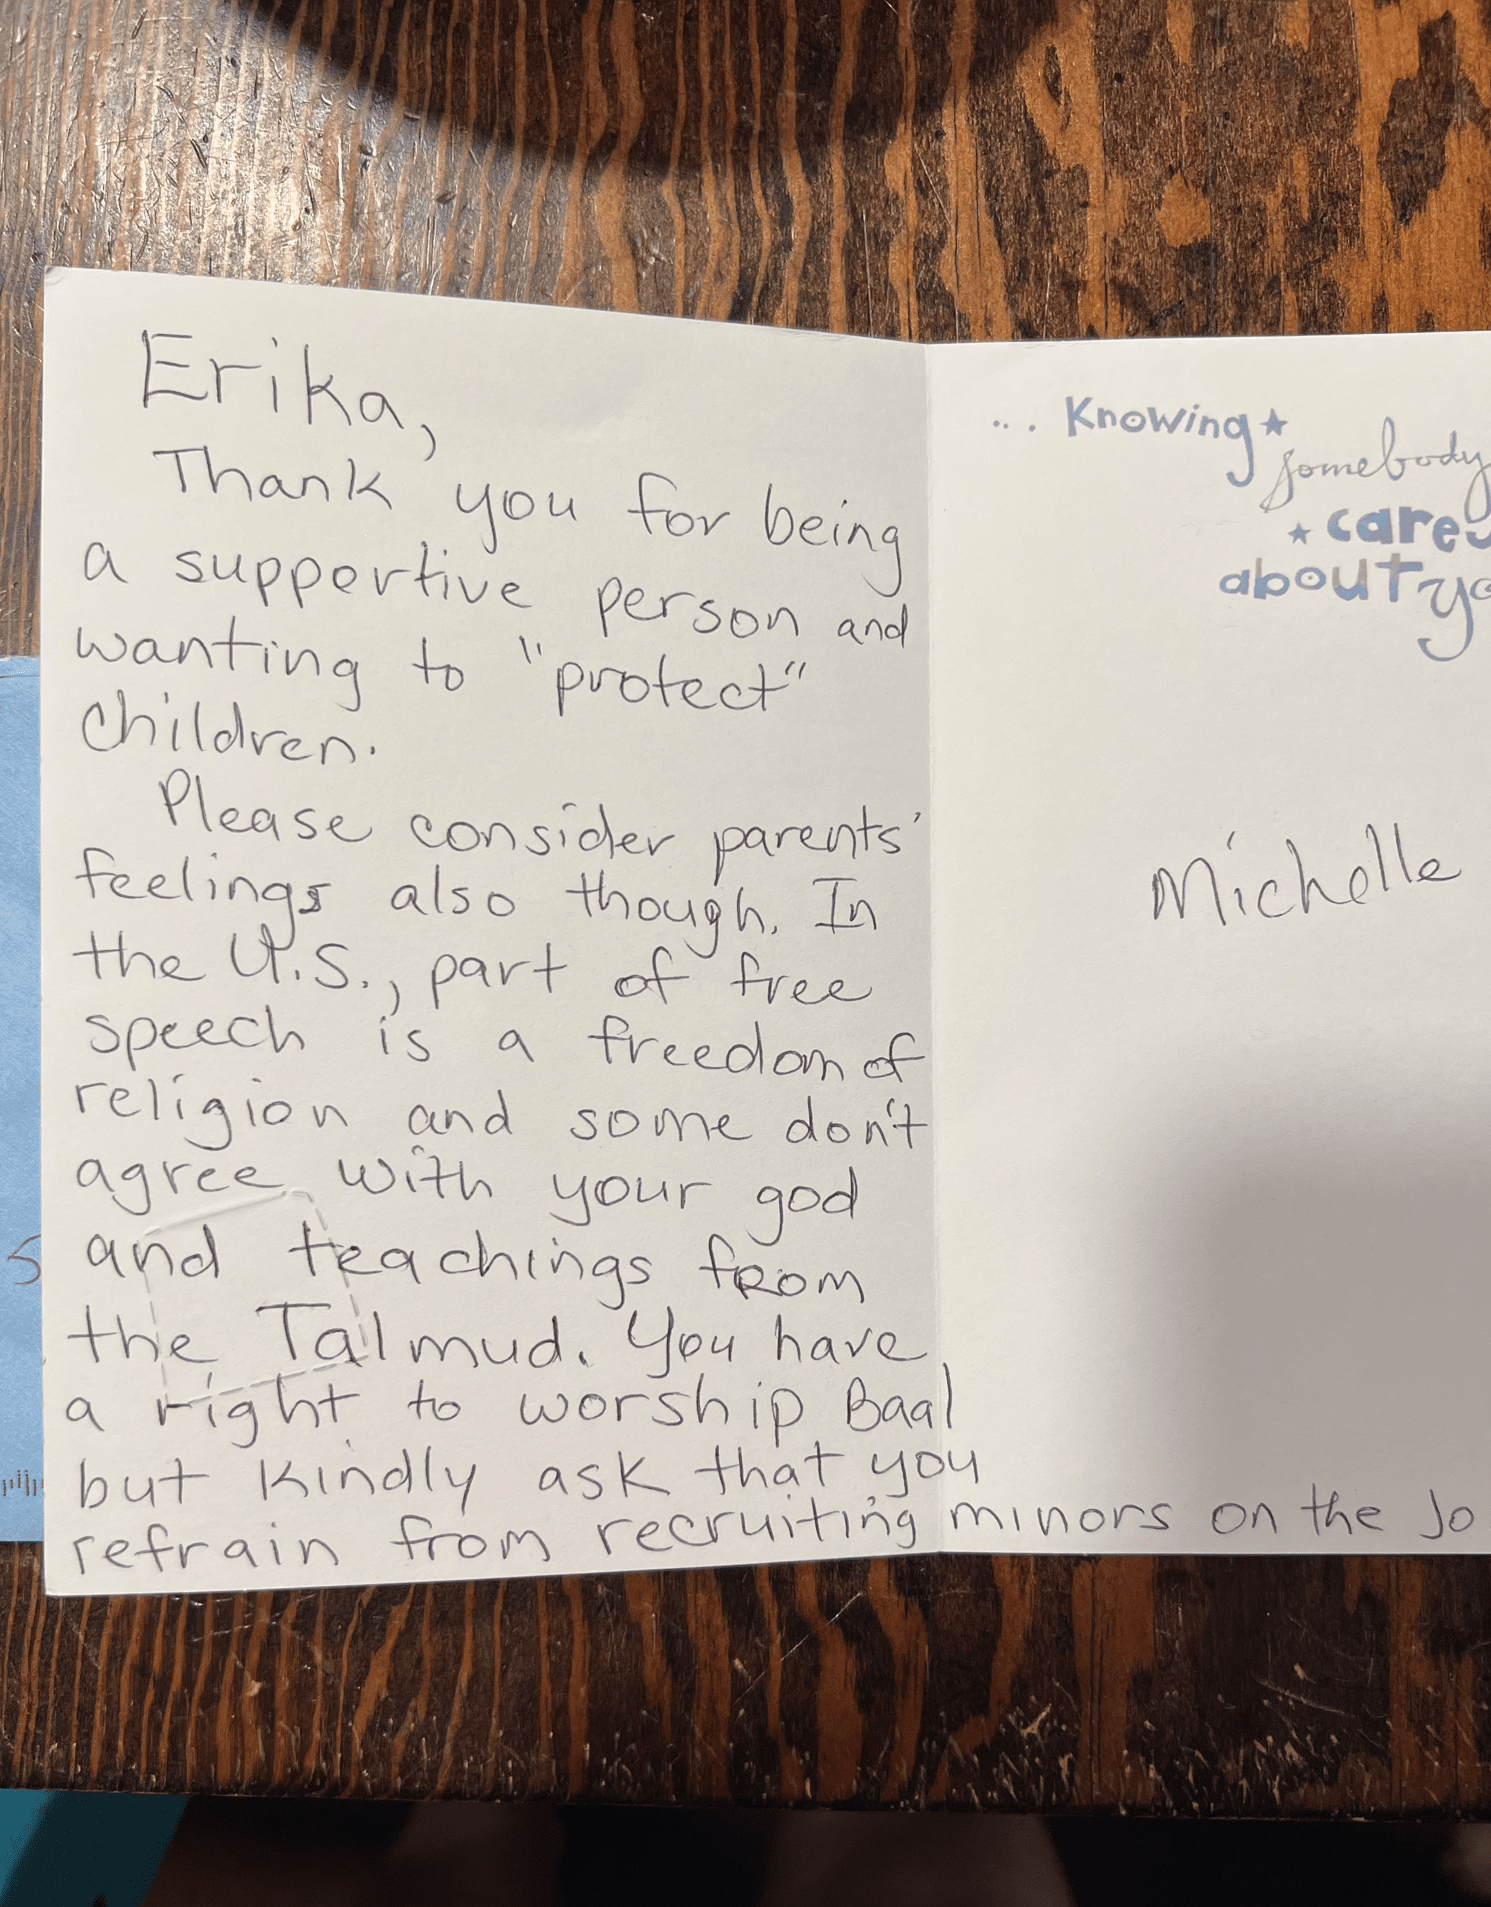 Erika,
Thank you for being
a supportive person and
wanting to "protect"
children.
Please consider parents'
feelings also though. In
the U.S., part of free
speech is a freedom of
religion and some don't
agree with your god
and teachings from
the Talmud. You have
a right to worship Baal
but kindly ask that you
refrain from recruiting minors on the Jo
... Knowing
somebody
cares
about yo
Michelle